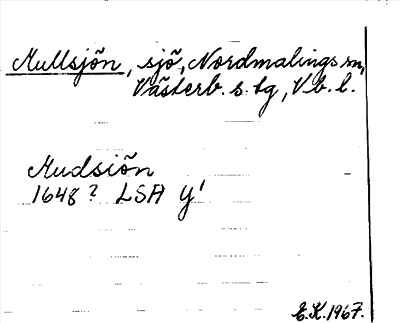 Mullsjön, sjö, Nordmalings sn,
Västerb. s. tg, Vb. l.
Mudsiön
1648? LSA Y'
E.K. 1967.